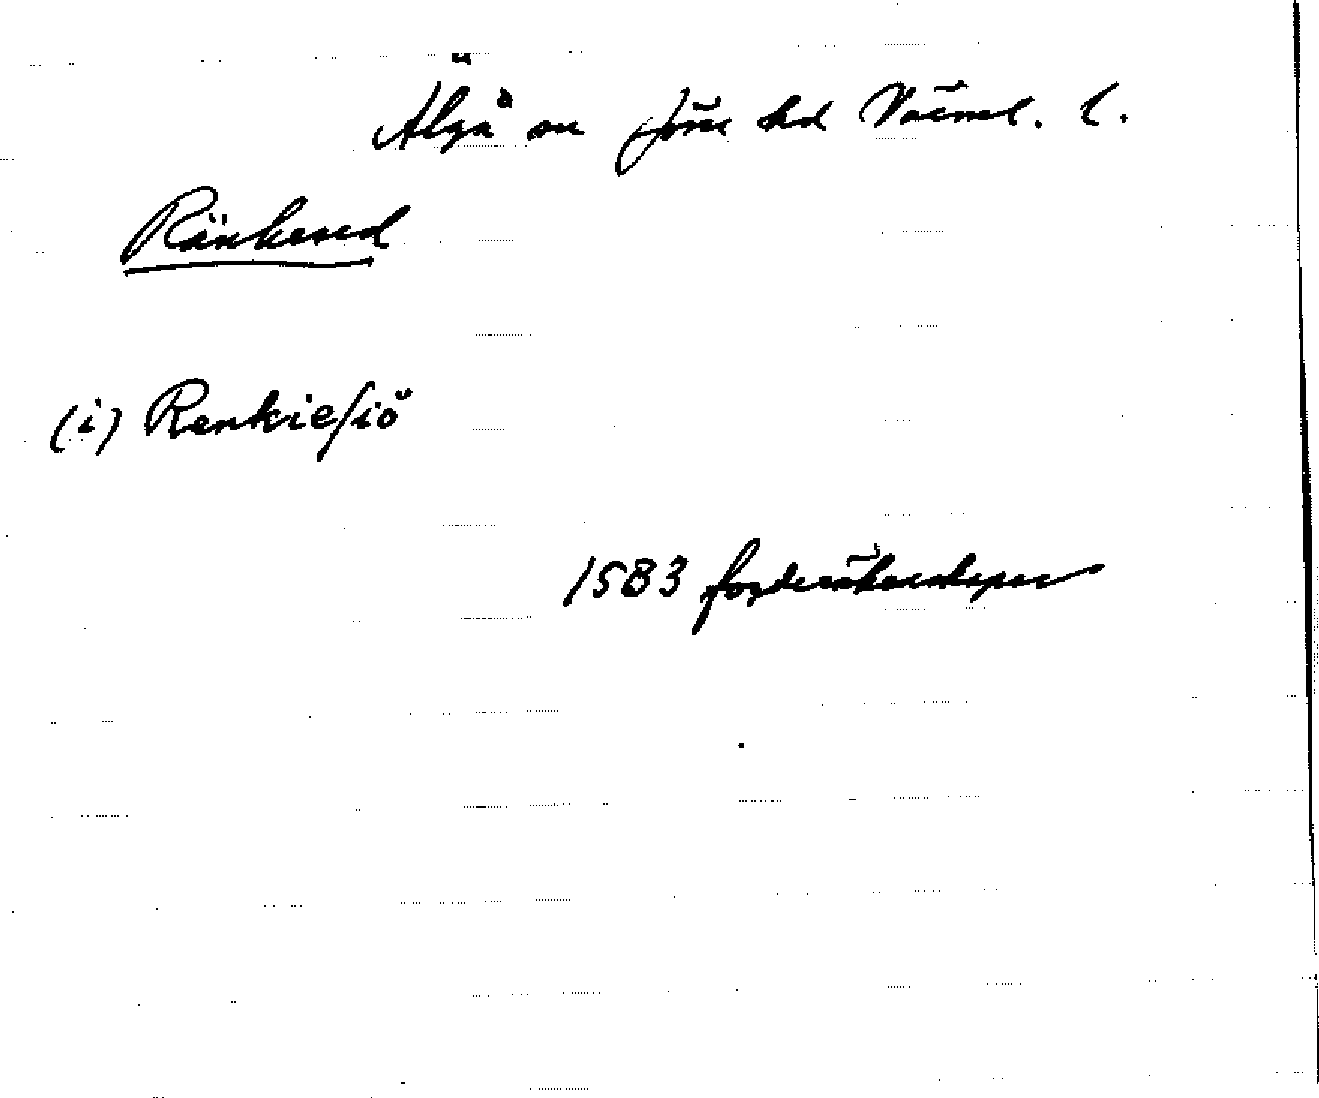 Älgå sn Jöse hd Värml. l.
Ränkesed
(i) Renkiesiö
1583 fogderäkenskaper